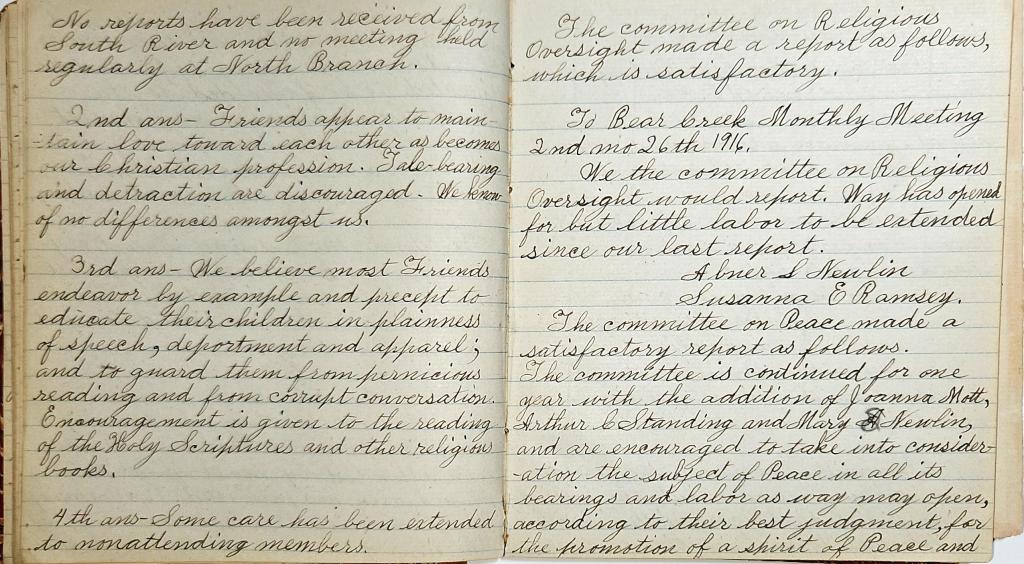 No reports have been received from
South River and no meeting held
regularly at North Branch.
2nd ans- Friends appear to main-
-tain love toward each other as becomes
our Christian profession. Tale-bearing
and detraction are discouraged. We know
of no differences amongst us.
3rd ans- We believe most Friends
endeavor by example and precept to
educate their children in plainness
of speech, deportment and apparel;
and to guard them from pernicious
reading and from corrupt conversation.
Encouragement is given to the reading
of the Holy Scriptures and other religious
books.
4th ans- Some care has been extended
to nonattending members.
The committee on Religious
Oversight made a report as follows,
which is satisfactory.
To Bear Creek Monthly Meeting
2nd mo 26th 1916.
We the committee on Religious
Oversight would report. Way has opened
for but little labor to be extended
since our last report.
Abner S Newlin
Susanna E Ramsey.
The committee on Peace made a
satisfactory report as follows.
The committee is continued for one
year with the addition of Joanna Mott,
Arthur C Standing and Mary Newlin,
and are encouraged to take into consider-
-ation the subject of Peace in all its
bearings and labor as way may open,
according to their best judgment, for
the promotion of a spirit of Peace and